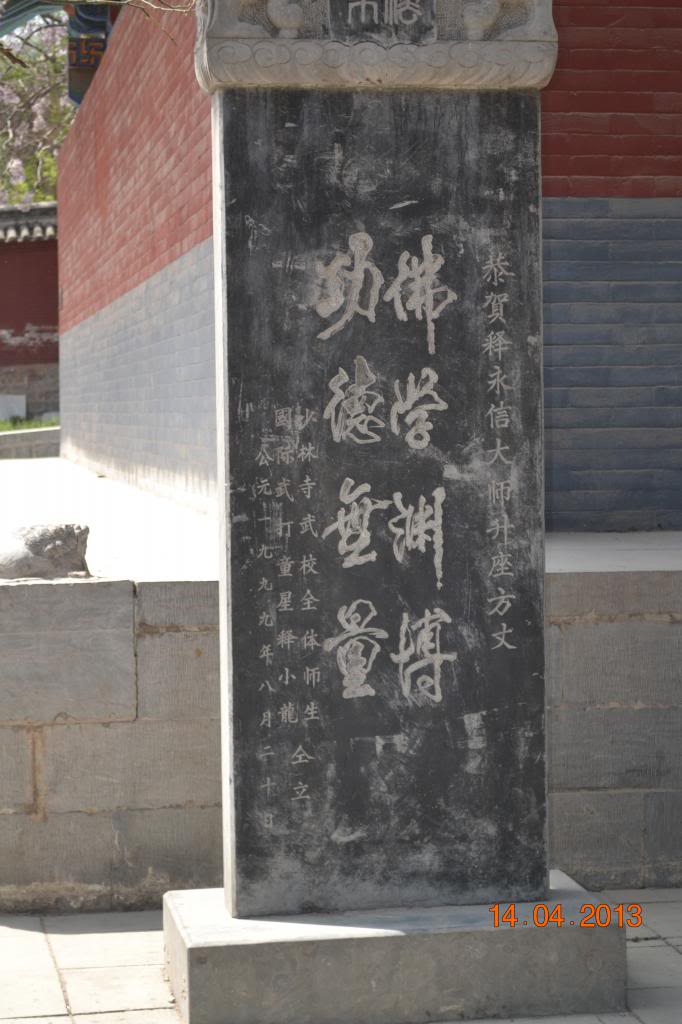 恭贺释永信大师升座方丈
佛学渊博
功德無量
少林寺武校全体师生
國际武打童星释小龍
仝立
公元一九九九年八月二十日
14.04.2013